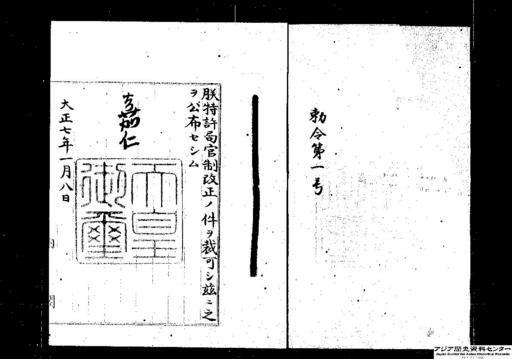 勅令第一号
朕特許局官制改正ノ件ヲ裁可シ茲ニ之
ヲ公布セシム
嘉仁
天皇
御璽
大正七年一月八日
内閣
アジア歴史資料センター
Japan Center for Asian Historical Records